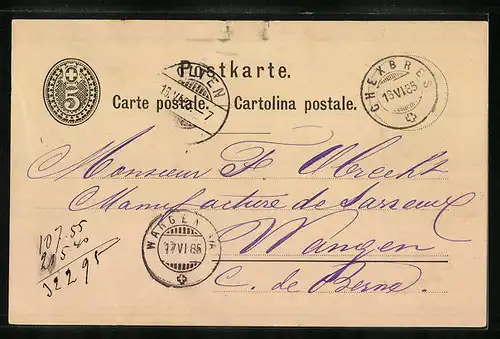 Postkarte.
5
Carte postale. Cartolina postale.
CHEXBRES
16 VI 85
Monsieur F. Obrecht
Manufacture de
Wangen
C. de Berne.
WANGEN
17 VI 85
107.55
322 95